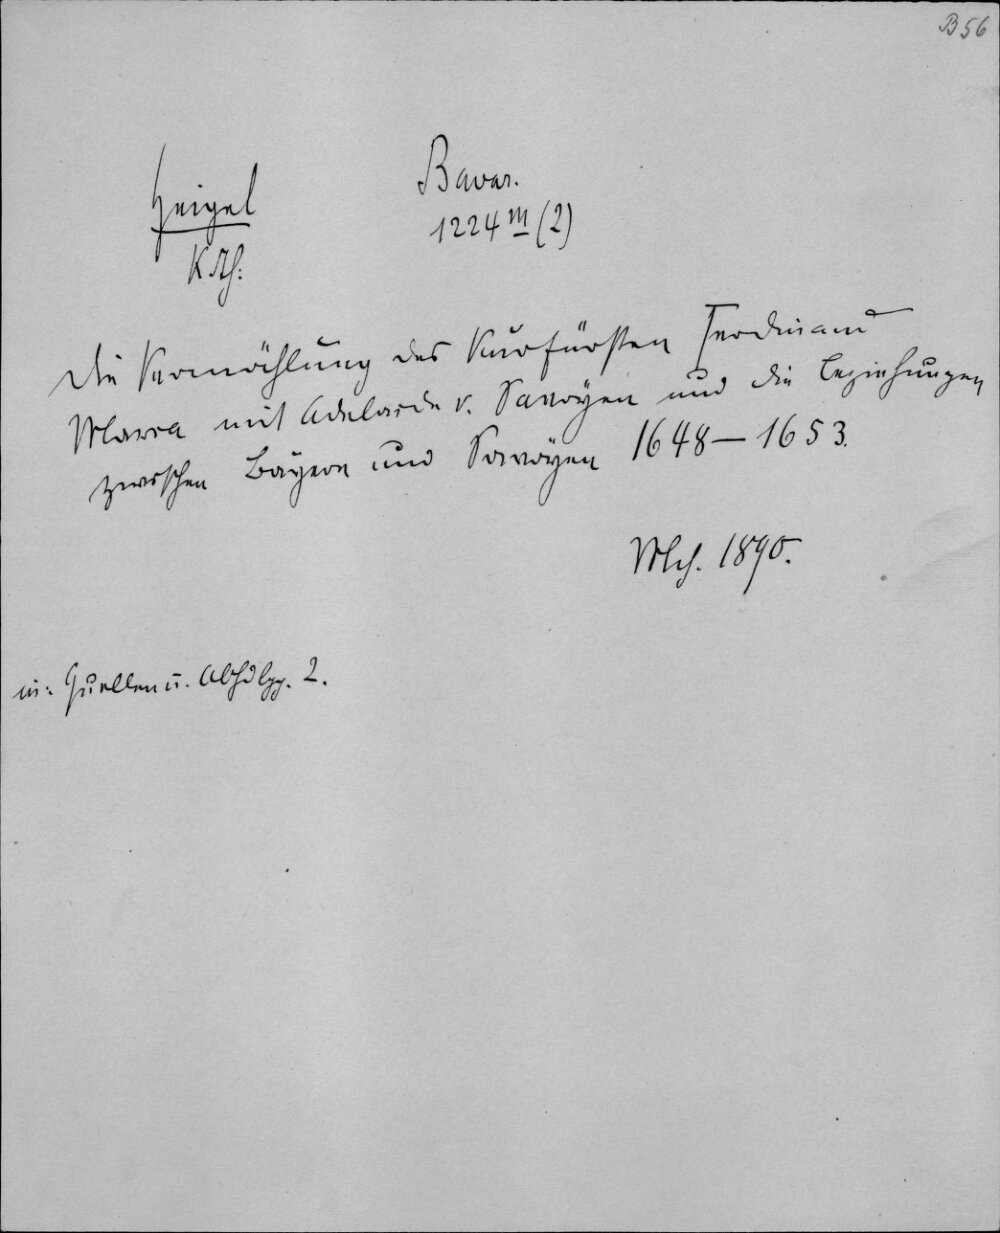 B 56
Heigel
K. Th:
Bavar.
1224 m (2)
Die Vermählung des Kurfürsten Ferdinand
Maria mit Adelaide v. Savoyen und die Beziehungen
zwischen Bayern und Savoyen 1648–1653.
Mch. 1890.
in: Quellen u. Abhdlgg. 2.